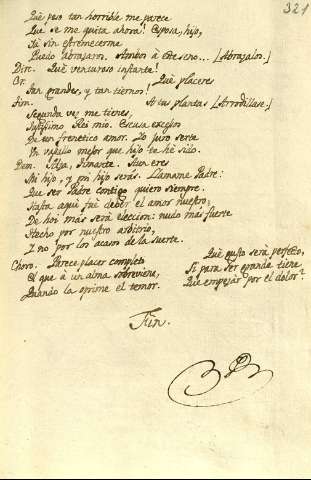 321
Qué peso tan horrible me parece
Que se me quita ahora! Esposa, hijo,
Ya sin estremecerme
Puedo abrazaros. Ambos à este seno... [Abrazalos.]
Dirc. Qué venturoso instante!
Cr. Qué placeres
Tan grandes, y tan tiernos!
Tim. A tus plantas [Arrodillase.]
Segunda vez me tienes,
Justissimo Rei mio. Escusa excessos
De un frenetico amor. Yo juro serte
Un vasallo mejor que hijo te hè sido.
Dem. Alza, Timante. Aun eres
Mi hijo, y mi hijo serás. Llamame Padre:
Que ser Padre contigo quiero siempre.
Hasta aqui fuè deber el amor nuestro;
De hoi mas serà eleccion: nudo mas fuerte
Hecho por nuestro arbitrio,
Y no por los acasos de la suerte.
Choro. Parece placer completo
El que à un alma sobreviene,
Quando la oprime el temor.
Què gusto serà perfecto,
Si para ser grande tiene
Que empezar por el dolor?
Fin.